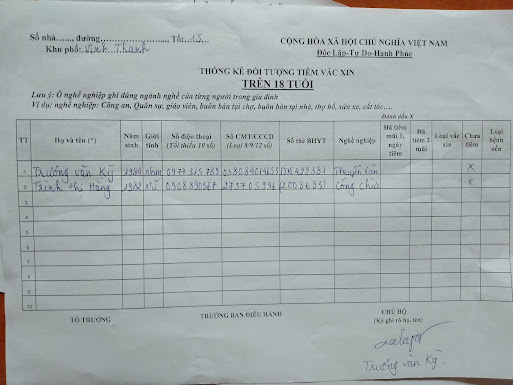 Số nhà......, đường........................., Tổ:...15...
CỘNG HÒA XÃ HỘI CHỦ NGHĨA VIỆT NAM
Khu phố: Vinh Thanh
Độc Lập-Tự Do-Hanh Phúc
THỐNG KÊ ĐỐI TƯỢNG TIÊM VẮC XIN
TRÊN 18 TUỔI
Lưu ý: Ô nghề nghiệp ghi đúng ngành nghề của từng người trong gia đình
Ví dụ: nghề nghiệp: Công an, Quân sự, giáo viên, buôn bán tại chợ, buôn bán tại nhà, thợ hồ, sửa xe, cắt tóc....
Đánh dấu X
TT Họ và tên (*) Năm sinh Giới tính Số điện thoại (Tối thiểu 10 số) Số CMT/CCCD (Loại 8/9/12 số) Số thẻ BHYT Nghề nghiệp Đã tiêm mũi 1, ngày tiêm Đã tiêm 2 mũi Loại vắc xin Chưa tiêm Loại bệnh nền
1 Trương Văn Kỳ 1984 Nam X
2 Trịnh Thị Hằng Nữ 0908890567 Công chức X
10
TỔ TRƯỞNG
TRƯỞNG BAN ĐIỀU HÀNH
CHỦ HỘ
(Ký ghi rõ họ, tên)
Trương Văn Kỳ